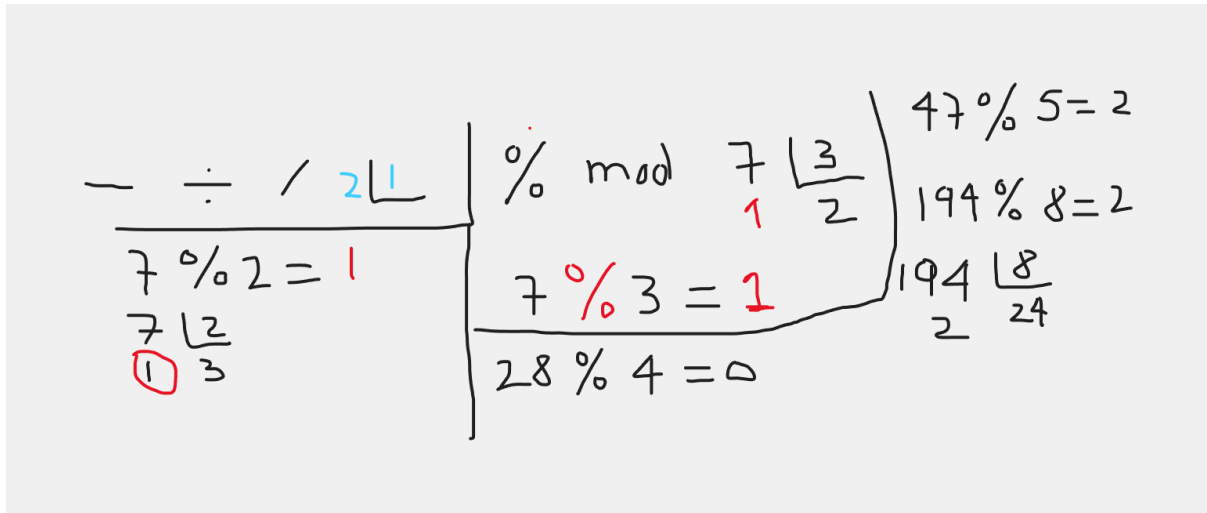 — ÷ / 2 1
7 % 2 = 1
7 2
1 3
% mod 7 3
1 2
7 % 3 = 1
28 % 4 = 0
47 % 5 = 2
194 % 8 = 2
194 8
2 24